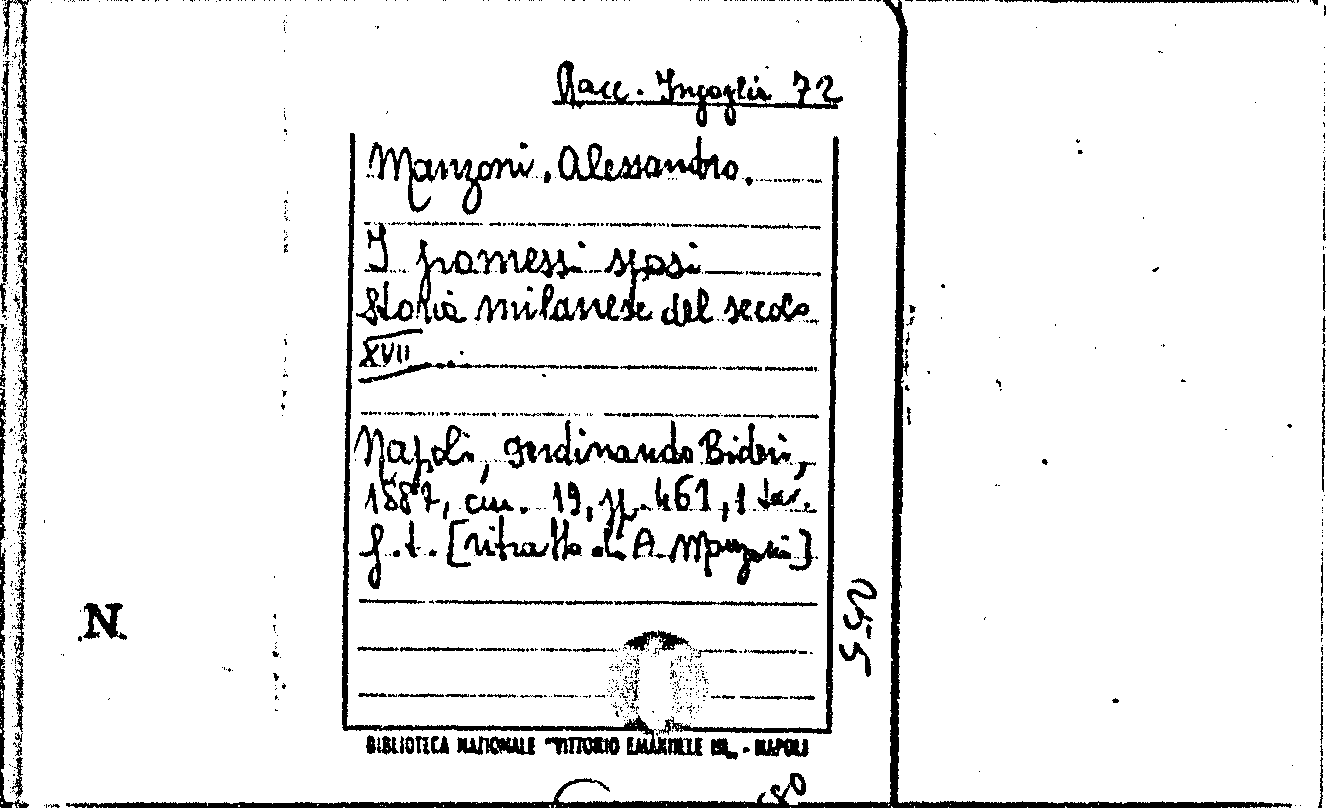 Racc. Ingoglia 72
Manzoni, Alessandro.
I promessi sposi
Storia milanese del secolo
XVII ...
Napoli, Ferdinando Bideri,
1887, cm. 19, pp. 461, 1 tav.
f.t. [ritratto di A. Manzoni]
N.
BIBLIOTECA NAZIONALE "VITTORIO EMANUELE III„ - NAPOLI